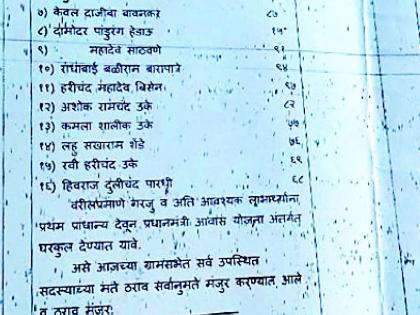 ७) केवल द्राजीबा बावनकर ८७
८) दामोदर पांडुरंग हेडाऊ १५
९) महादेव साठवणे ९१
१०) राधाबाई बळीराम बारापात्रे ९४
११) हरीचंद महादेव बिसेन ९७
१२) अशोक रामचंद उके ८२
१३) कमला शालीक उके ७७
१४) लहु सखाराम शेंडे ७६
१५) रवी हरीचंद उके ६९
१६) हिवराज दुलीचंद पारधी ६८
वरीलप्रमाणे गरजु व अति आवश्यक लाभार्थ्यांना
प्रथम प्राधान्य देवून प्रधानमंत्री आवास योजना अंतर्गत
घरकुल देण्यात यावे.
असे आजच्या ग्रामसभेत सर्व उपस्थित
सदस्याच्या मते ठराव सर्वानुमते मंजुर करण्यात आले
व ठराव मंजुर.